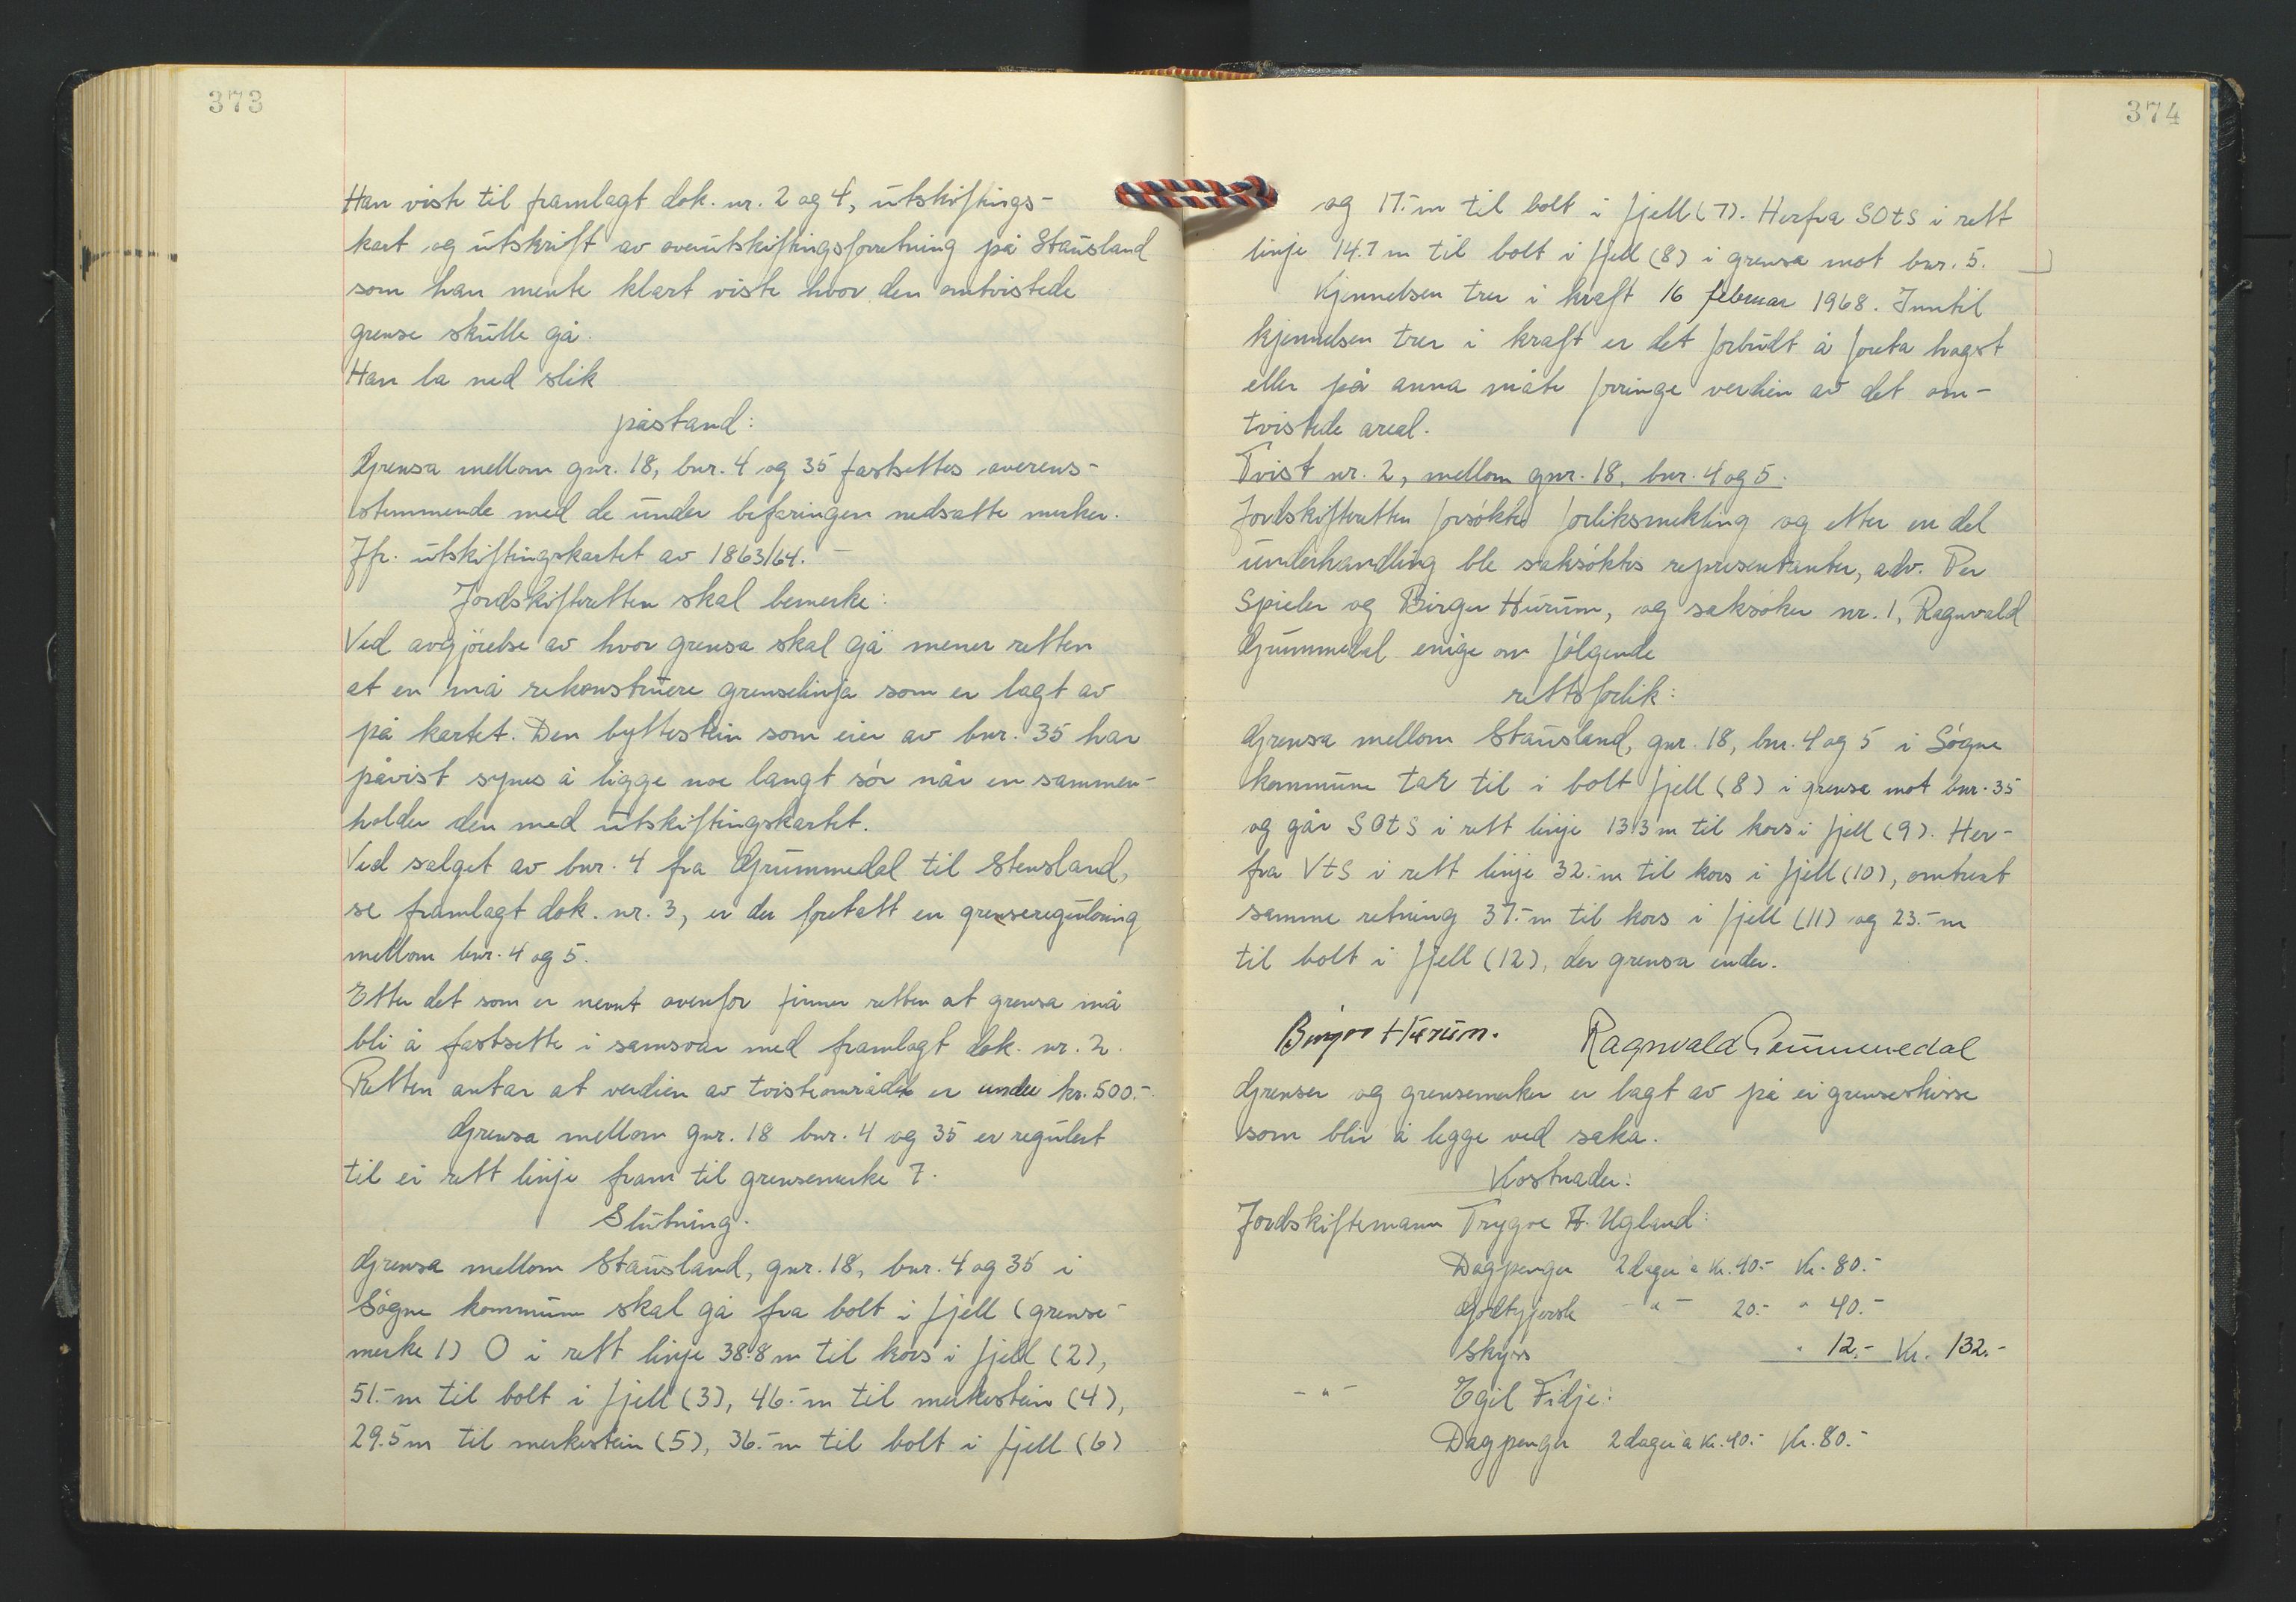 373
Han viste til framlagt dok. nr. 2 og 4, utskiftings-
kart og utskrift av overutskiftingsforretning på Stausland
som han mente klart viste hvor den omtvistede
grense skulle gå.
Han la ned slik
påstand:
Grensa mellom gnr. 18, bnr. 4 og 35 fastsettes overens-
stemmende med de under befaringen nedsatte merker.
Jfr. utskiftingskartet av 1863/64. -
Jordskifteretten skal bemerke:
Ved avgjörelse av hvor grensa skal gå mener retten
at en må rekonstruere grenselinja som er lagt av
på kartet. Den byttestein som eier av bnr. 35 har
påvist synes å ligge noe langt sör når en sammen-
holder den med utskiftingskartet.
Ved salget av bnr. 4 fra Grummedal til Stensland,
se framlagt dok. nr. 3, er der foretatt en grenseregulering
mellom bnr. 4 og 5.
Etter det som er nevnt ovenfor finner retten at grensa må
bli å fastsette i samsvar med framlagt dok. nr. 2.
Retten antar at verdien av tvisteområdet er under kr. 500.-
Grensa mellom gnr. 18 bnr. 4 og 35 er regulert
til ei rett linje fram til grensemerke 7.
Slutning.
Grensa mellom Stausland, gnr. 18, bnr. 4 og 35 i
Sögne kommune skal gå fra bolt i fjell (grense-
merke 1) O i rett linje 38.8 m til kors i fjell (2),
51.- m til bolt i fjell (3), 46.- m til merkestein (4),
29.5 m til merkestein (5), 36.- m til bolt i fjell (6)
374
og 17.- m til bolt i fjell (7). Herfra SOtS i rett
linje 14.7 m til bolt i fjell (8) i grensa mot bnr. 5.
Kjennelsen trer i kraft 16 februar 1968. Inntil
kjennelsen trer i kraft er det forbudt å foreta hogst
eller på anna måte forringe verdien av det om-
tvistede areal.
Tvist nr. 2, mellom gnr. 18, bnr. 4 og 5.
Jordskifteretten forsökte forliksmekling og etter en del
underhandling ble saksöktes representanter, adv. Per
Spieler og Birger Hurum, og saksöker nr. 1, Ragnvald
Grummedal enige om fölgende
rettsforlik:
Grensa mellom Stausland, gnr. 18, bnr. 4 og 5 i Sögne
kommune tar til i bolt fjell (8) i grensa mot bnr. 35
og går SOtS i rett linje 13.3 m til kors i fjell (9). Her-
fra VtS i rett linje 32.- m til kors i fjell (10), omtrent
samme retning 37.- m til kors i fjell (11) og 23.- m
til bolt i fjell (12), der grensa ender.
Birger Hurum. Ragnvald Grummedal
Grenser og grensemerker er lagt av på ei grenseskisse
som blir å legge ved saka.
Kostnader:
Jordskiftemann Trygve A. Ugland:
Dagpenger 2 dager a kr. 40.- Kr. 80.-
Godtgjörsle - " - 20.- " 40.-
Skyss " 12.- Kr. 132.-
- " - Egil Fidje:
Dagpenger 2 dager à kr. 40.- Kr. 80.-